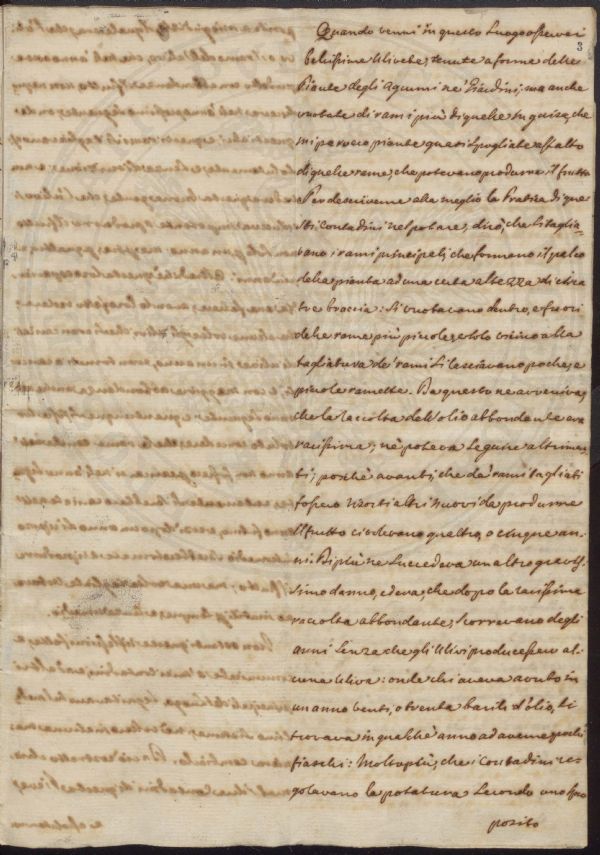 3
Quando venni in questo Luogo osservai
bellissime Ulivete, tenute a forme delle
Piante degli Agrumi ne' Giardini; ma anche
vuotate di rami più di quelle in guisa, che
mi parvero piante quasi spogliate affatto
di quelle rame, che potevano produrre il frutto.
Per descriverne alla meglio la Pratica di que=
sti contadini nel potare, dirò, che si taglia=
vano i rami principali, che formano il palco
della pianta ad una certa altezza di circa
tre braccia: Si vuotavano dentro, e fuori
delle rame più piccole, e solo vicino alla
tagliatura de' rami si lasciavano poche, e
piccole ramette. Da questo ne avveniva,
che la raccolta dell'olio abbondante era
rarissima; nè poteva seguire altrimen=
ti; poichè avanti, che da' rami tagliati
fossero usciti altri nuovi da produrre
il frutto ci volevano quattro, o cinque an=
ni. Di più ne succedeva un altro gravis=
simo danno, ed era, che dopo la rarissima
raccolta abbondante, scorrevano degli
anni senza che gli Ulivi producessero al=
cuna Uliva: onde chi aveva avuto in
un anno venti, o trenta barili d'olio, si
trovava in qualche anno ad averne pochi
fiaschi: Molto più, che i Contadini re=
golavano la potatura secondo uno spro
posito